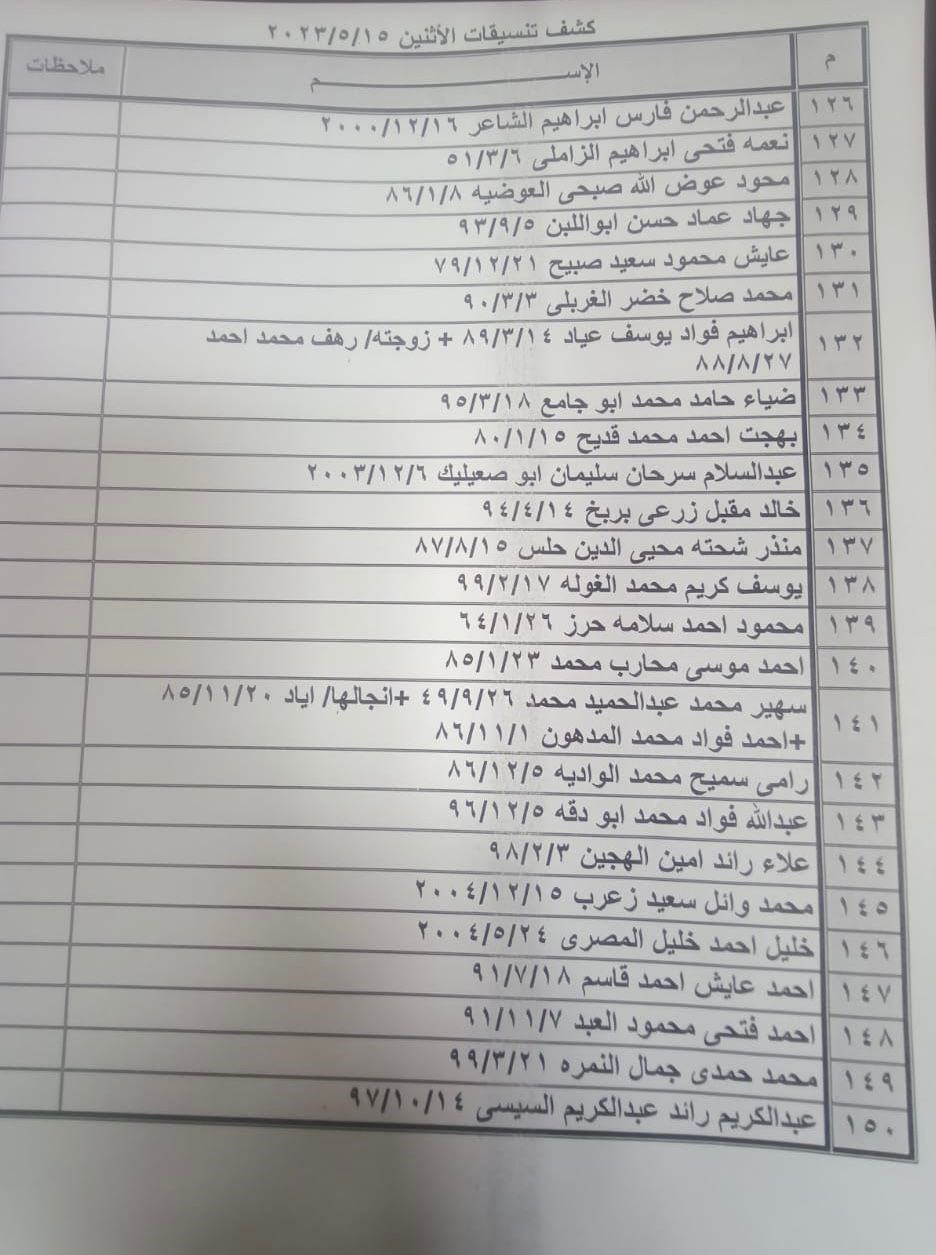 كشف تنسيقات الأثنين ٢٠٢٣/٥/١٥
م الإســــــم ملاحظات
١٢٦ عبدالرحمن فارس ابراهيم الشاعر ٢٠٠٠/١٢/١٦
١٢٧ نعمه فتحى ابراهيم الزاملى ٥١/٣/٦
١٢٨ محود عوض الله صبحى العوضيه ٨٦/١/٨
١٢٩ جهاد عماد حسن ابواللبن ٩٣/٩/٥
١٣٠ عايش محمود سعيد صبيح ٧٩/١٢/٢١
١٣١ محمد صلاح خضر الغربلى ٩٠/٣/٣
١٣٢ ابراهيم فواد يوسف عياد ٨٩/٣/١٤ + زوجته/ رهف محمد احمد
٨٨/٨/٢٧
١٣٣ ضياء حامد محمد ابو جامع ٩٥/٣/١٨
١٣٤ بهجت احمد محمد قديح ٨٠/١/١٥
١٣٥ عبدالسلام سرحان سليمان ابو صعيليك ٢٠٠٣/١٢/٦
١٣٦ خالد مقبل زرعى بربخ ٩٤/٤/١٤
١٣٧ منذر شحته محيى الدين حلس ٨٧/٨/١٥
١٣٨ يوسف كريم محمد الغوله ٩٩/٢/١٧
١٣٩ محمود احمد سلامه حرز ٦٤/١/٢٦
١٤٠ احمد موسى محارب محمد ٨٥/١/٢٣
١٤١ سهير محمد عبدالحميد محمد ٤٩/٩/٢٦ +انجالها/ اياد ٨٥/١١/٢٠
+احمد فواد محمد المدهون ٨٦/١١/١
١٤٢ رامى سميح محمد الواديه ٨٦/١٢/٥
١٤٣ عبدالله فواد محمد ابو دقه ٩٦/١٢/٥
١٤٤ علاء رائد امين الهجين ٩٨/٢/٣
١٤٥ محمد وائل سعيد زعرب ٢٠٠٤/١٢/١٥
١٤٦ خليل احمد خليل المصرى ٢٠٠٤/٥/٢٤
١٤٧ احمد عايش احمد قاسم ٩١/٧/١٨
١٤٨ احمد فتحى محمود العبد ٩١/١١/٧
١٤٩ محمد حمدى جمال النمره ٩٩/٣/٢١
١٥٠ عبدالكريم رائد عبدالكريم السيسى ٩٧/١٠/١٤